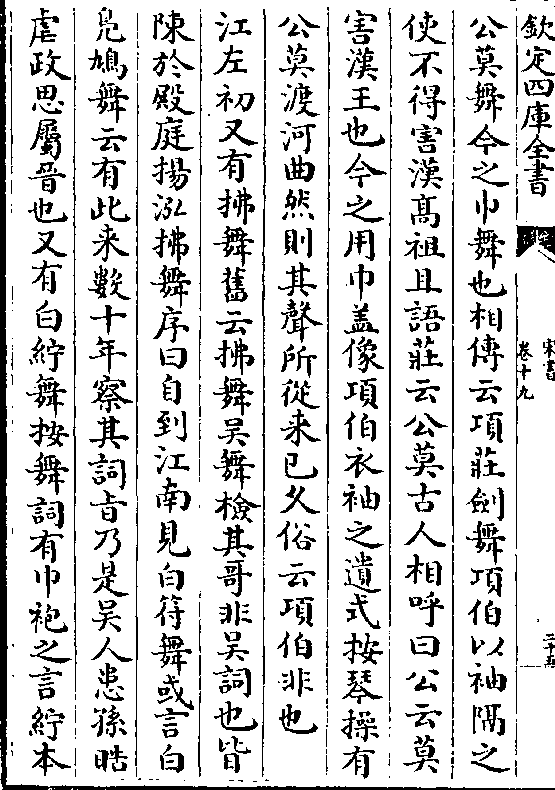 欽定四庫全書
宋書
卷十九
公莫舞今之巾舞也相傳云項莊劍舞項伯以袖隔之
使不得害漢髙祖且語莊云公莫古人相呼曰公云莫
害漢王也今之用巾盖像項伯衣袖之遺式按琴操有
公莫渡河曲然則其聲所從来已久俗云項伯非也
江左初又有拂舞舊云拂舞吴舞檢其哥非吴詞也皆
陳於殿庭揚泓拂舞序曰自到江南見白符舞或言白
鳬鳩舞云有此来數十年察其詞㫖乃是吴人患孫晧
虐政思屬晉也又有白紵舞按舞詞有巾袍之言紵本